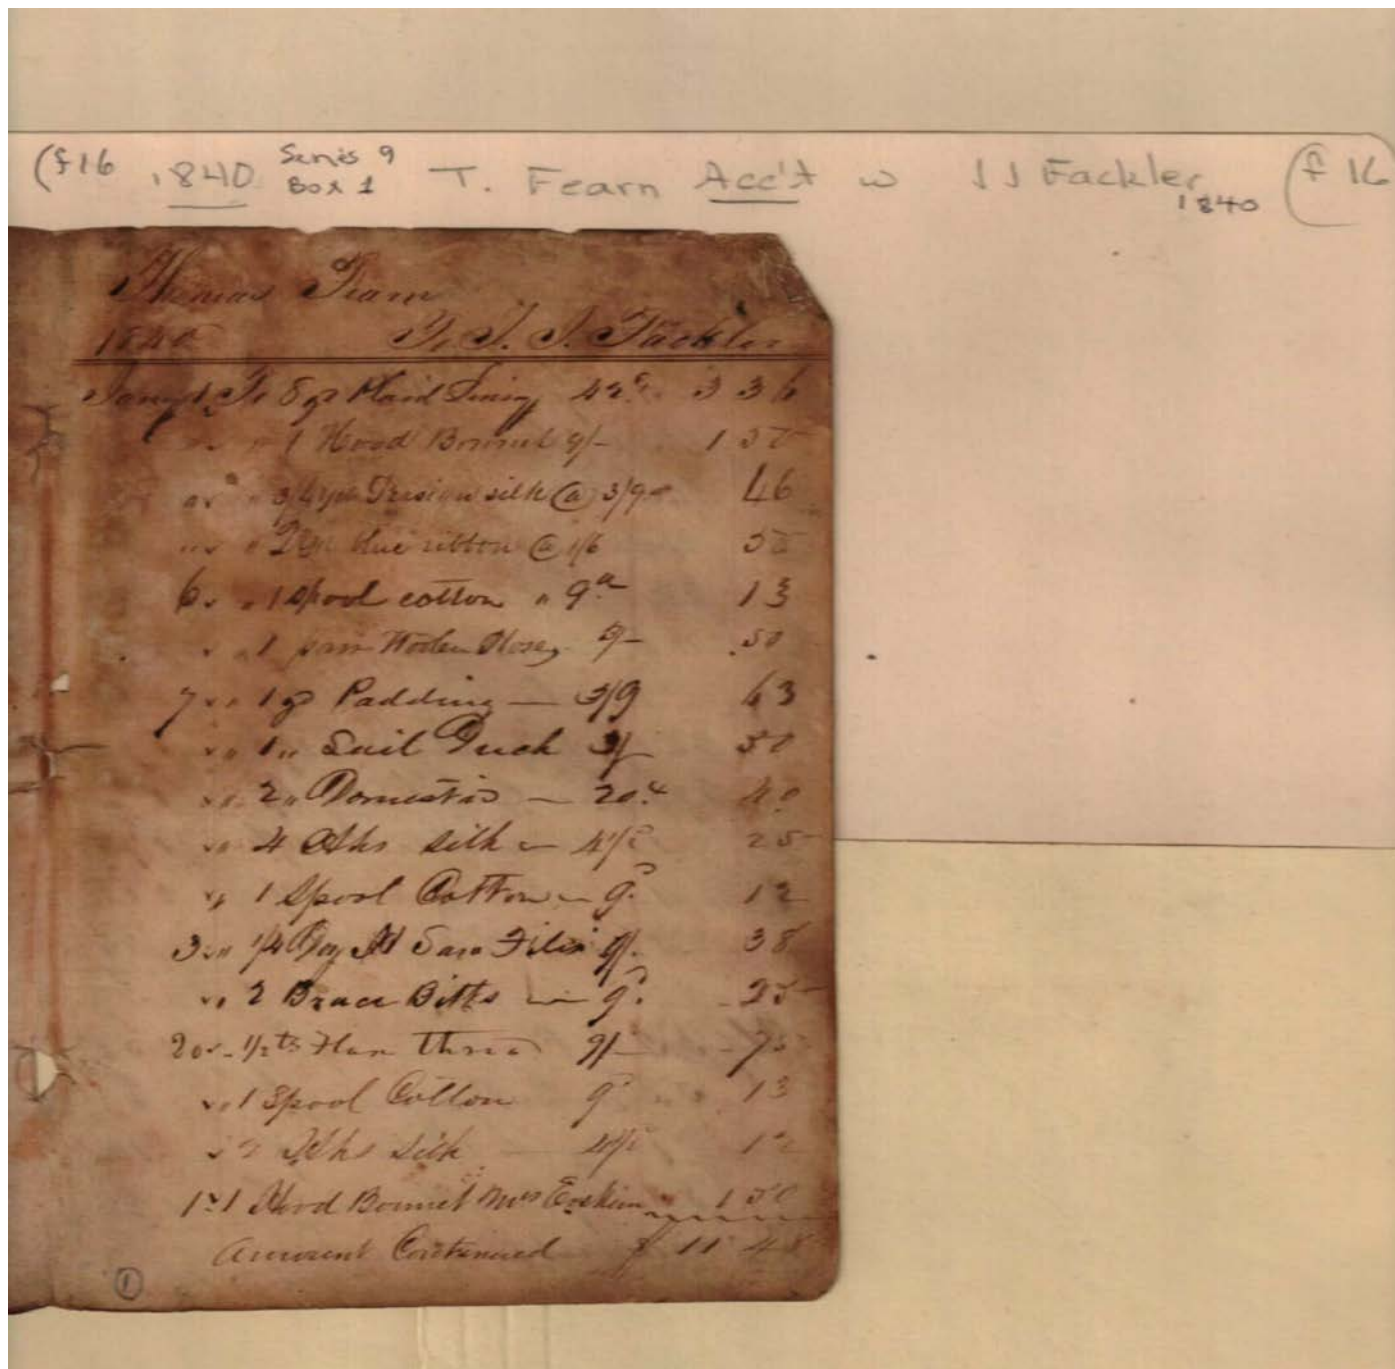 (f16 1840 Series 9 Box 1 T. Fearn Acc't w J J Fackler 1840 (f 16
Thomas Fearn
1840 To J. J. Fackler
To 8 yd Plaid 42c 3 36
" " 1 Hood Bonnet 9/- 1 50
" " 3/4 yd silk @ 3/9 46
" " 2 yd blue ribbon @ 1/6 50
6 " " 1 spool cotton " 9d 13
" " 1 pair Hose 3/- .50
7 " " 1 yd Padding — 3/9 63
" " 1 " Sail Duck 3/- 50
" " 2 " Domestic — 20c 40
" " 4 Sks silk — 4 1/2 25
" 1 Spool Cotton — 9d 12
" " 1/4 Saw Files 38
" " 2 Brace Bitts — 9d 25
20 " 1/2 lb Flax 9/- 75
" " 1 Spool Cotton 9d 13
" 2 Sks silk — 4 1/2 12
1 Hood Bonnet Mrs Erskine 1 50
Amount Continued $ 11 48
1